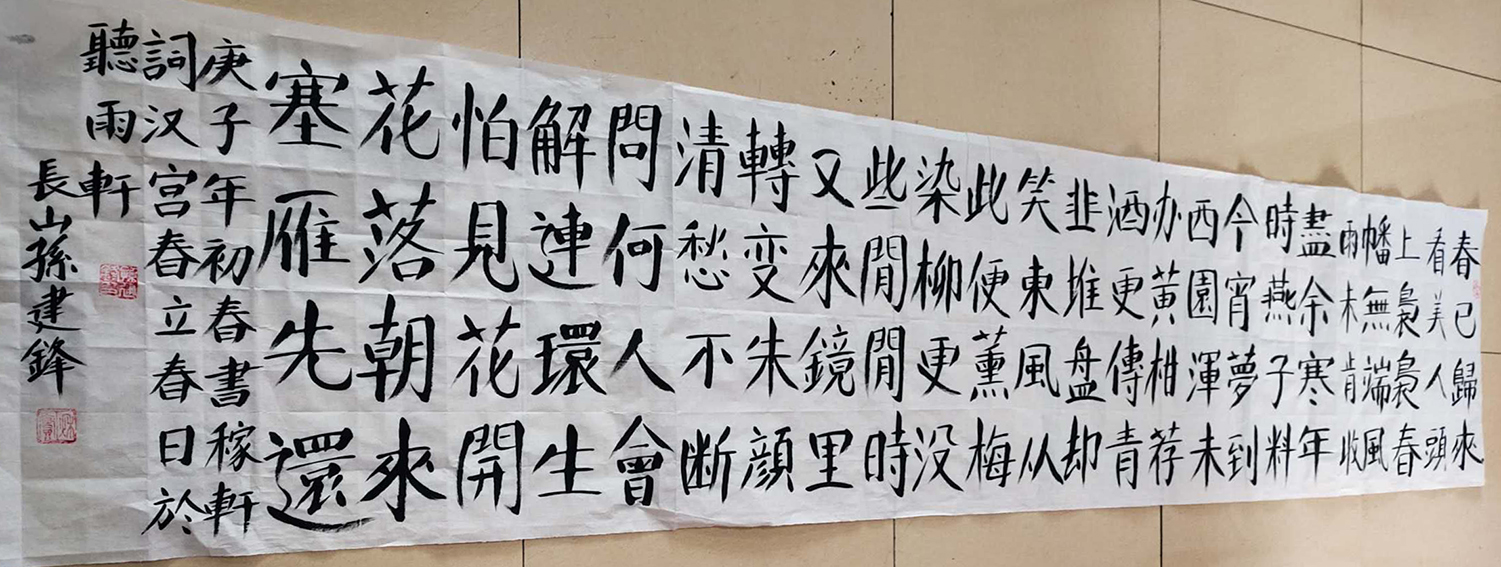 春已歸來
看美人頭
上裊裊春
幡無端風
雨未肯收
盡余寒年
時燕子料
今宵夢到
西園渾未
办黃柑荐
酒更傳青
韭堆盘却
笑東風从
此便薰梅
染柳更没
些閒閒時
又來鏡里
轉变朱顏
清愁不断
問何人會
解連環生
怕見花開
花落朝來
塞雁先還
庚子年初春書稼軒
詞汉宫春立春日於
聽雨軒
長山孫建鋒